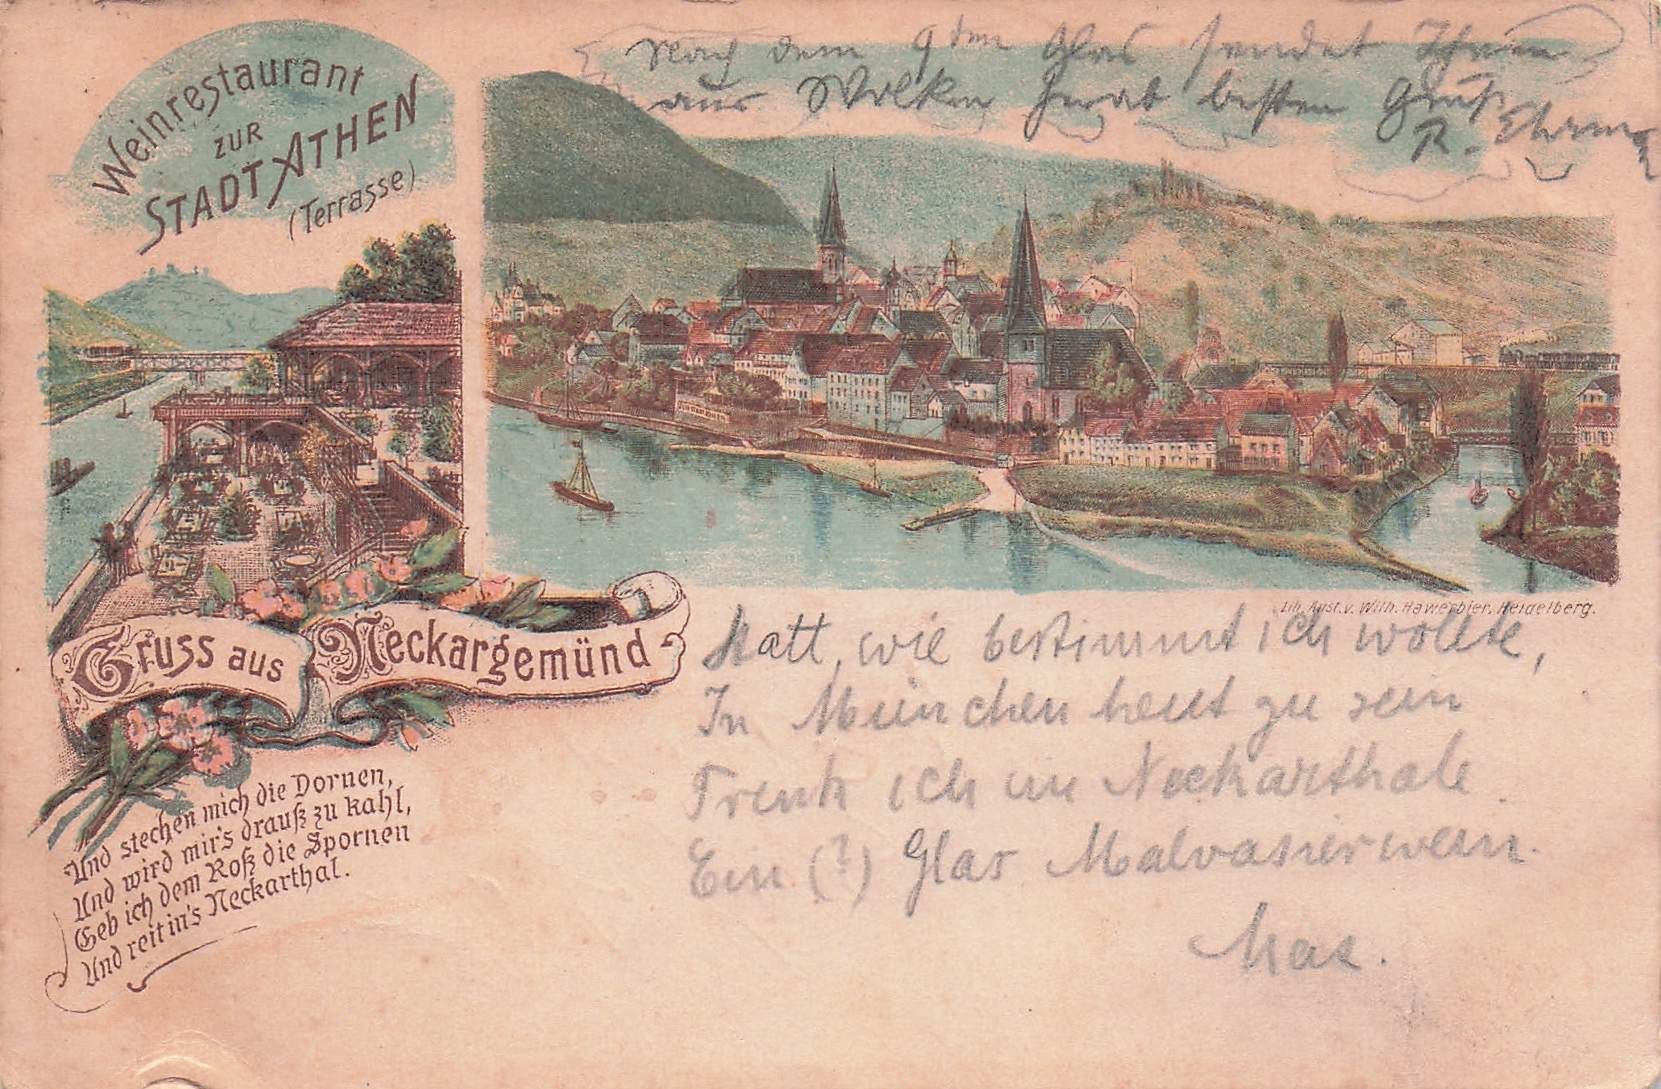 Weinrestaurant
ZUR
STADT ATHEN
(Terrasse)
Nach dem 9ten Glas sendet Ihnen
aus Wolken herab besten Gruß
R.
Lith. Anst. v. Wilh. Hawerbier, Heidelberg.
Gruss aus Neckargemünd
Und stechen mich die Dornen,
Und wird mir's drauß zu kahl,
Geb ich dem Roß die Spornen
Und reit in's Neckarthal.
Statt, wie bestimmt ich wollte,
In München heut zu sein
Trink ich im Neckarthale
Ein (?) Glas Malvasierwein.
Max.